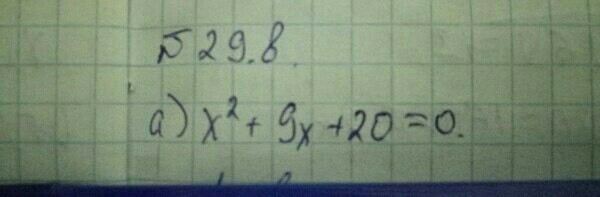 № 29.8.
а) x² + 9x + 20 = 0.